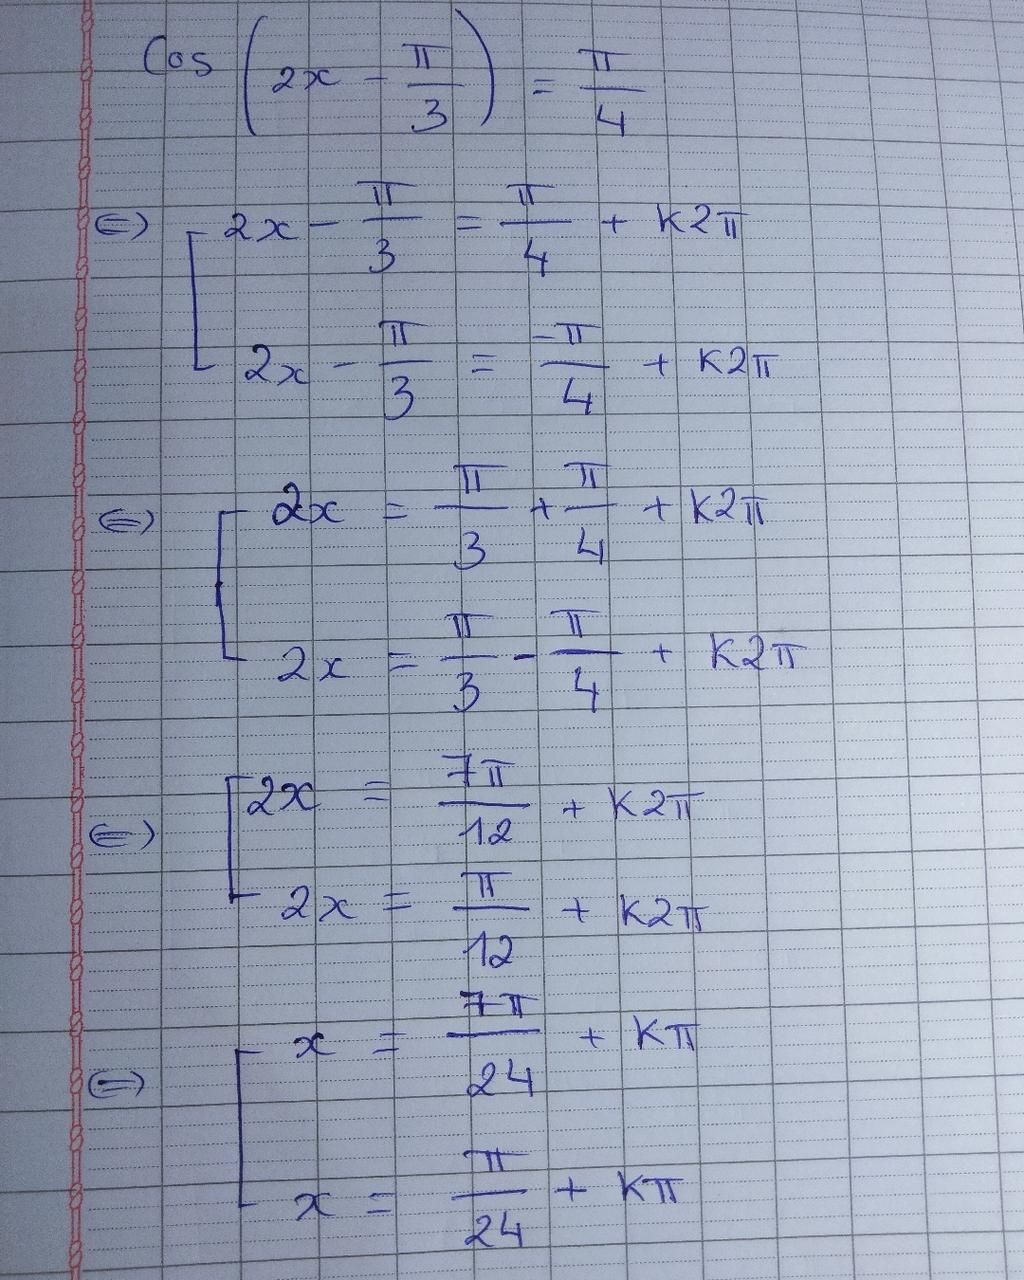 Cos (2x - π/3) = π/4
⇔ [ 2x - π/3 = π/4 + K2π
2x - π/3 = -π/4 + K2π
⇔ [ 2x = π/3 + π/4 + K2π
2x = π/3 - π/4 + K2π
⇔ [ 2x = 7π/12 + K2π
2x = π/12 + K2π
⇔ [ x = 7π/24 + Kπ
x = π/24 + Kπ